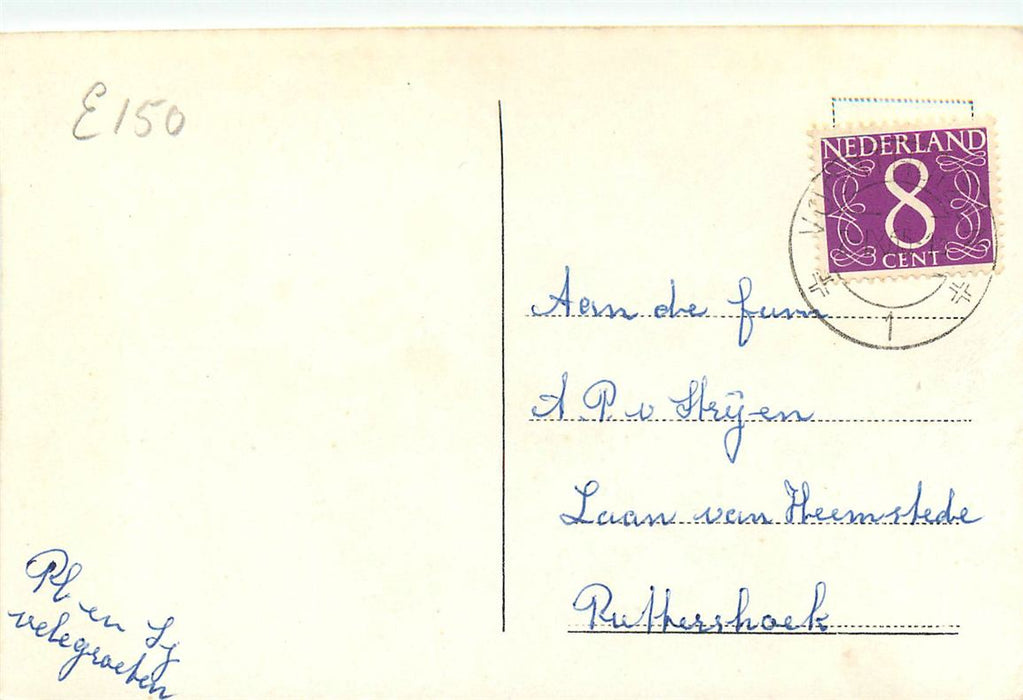 E150
NEDERLAND
8
CENT
1
Aan de fam
A. P. v Strÿen
Laan van Heemstede
Puthershoek
en
velegroeten